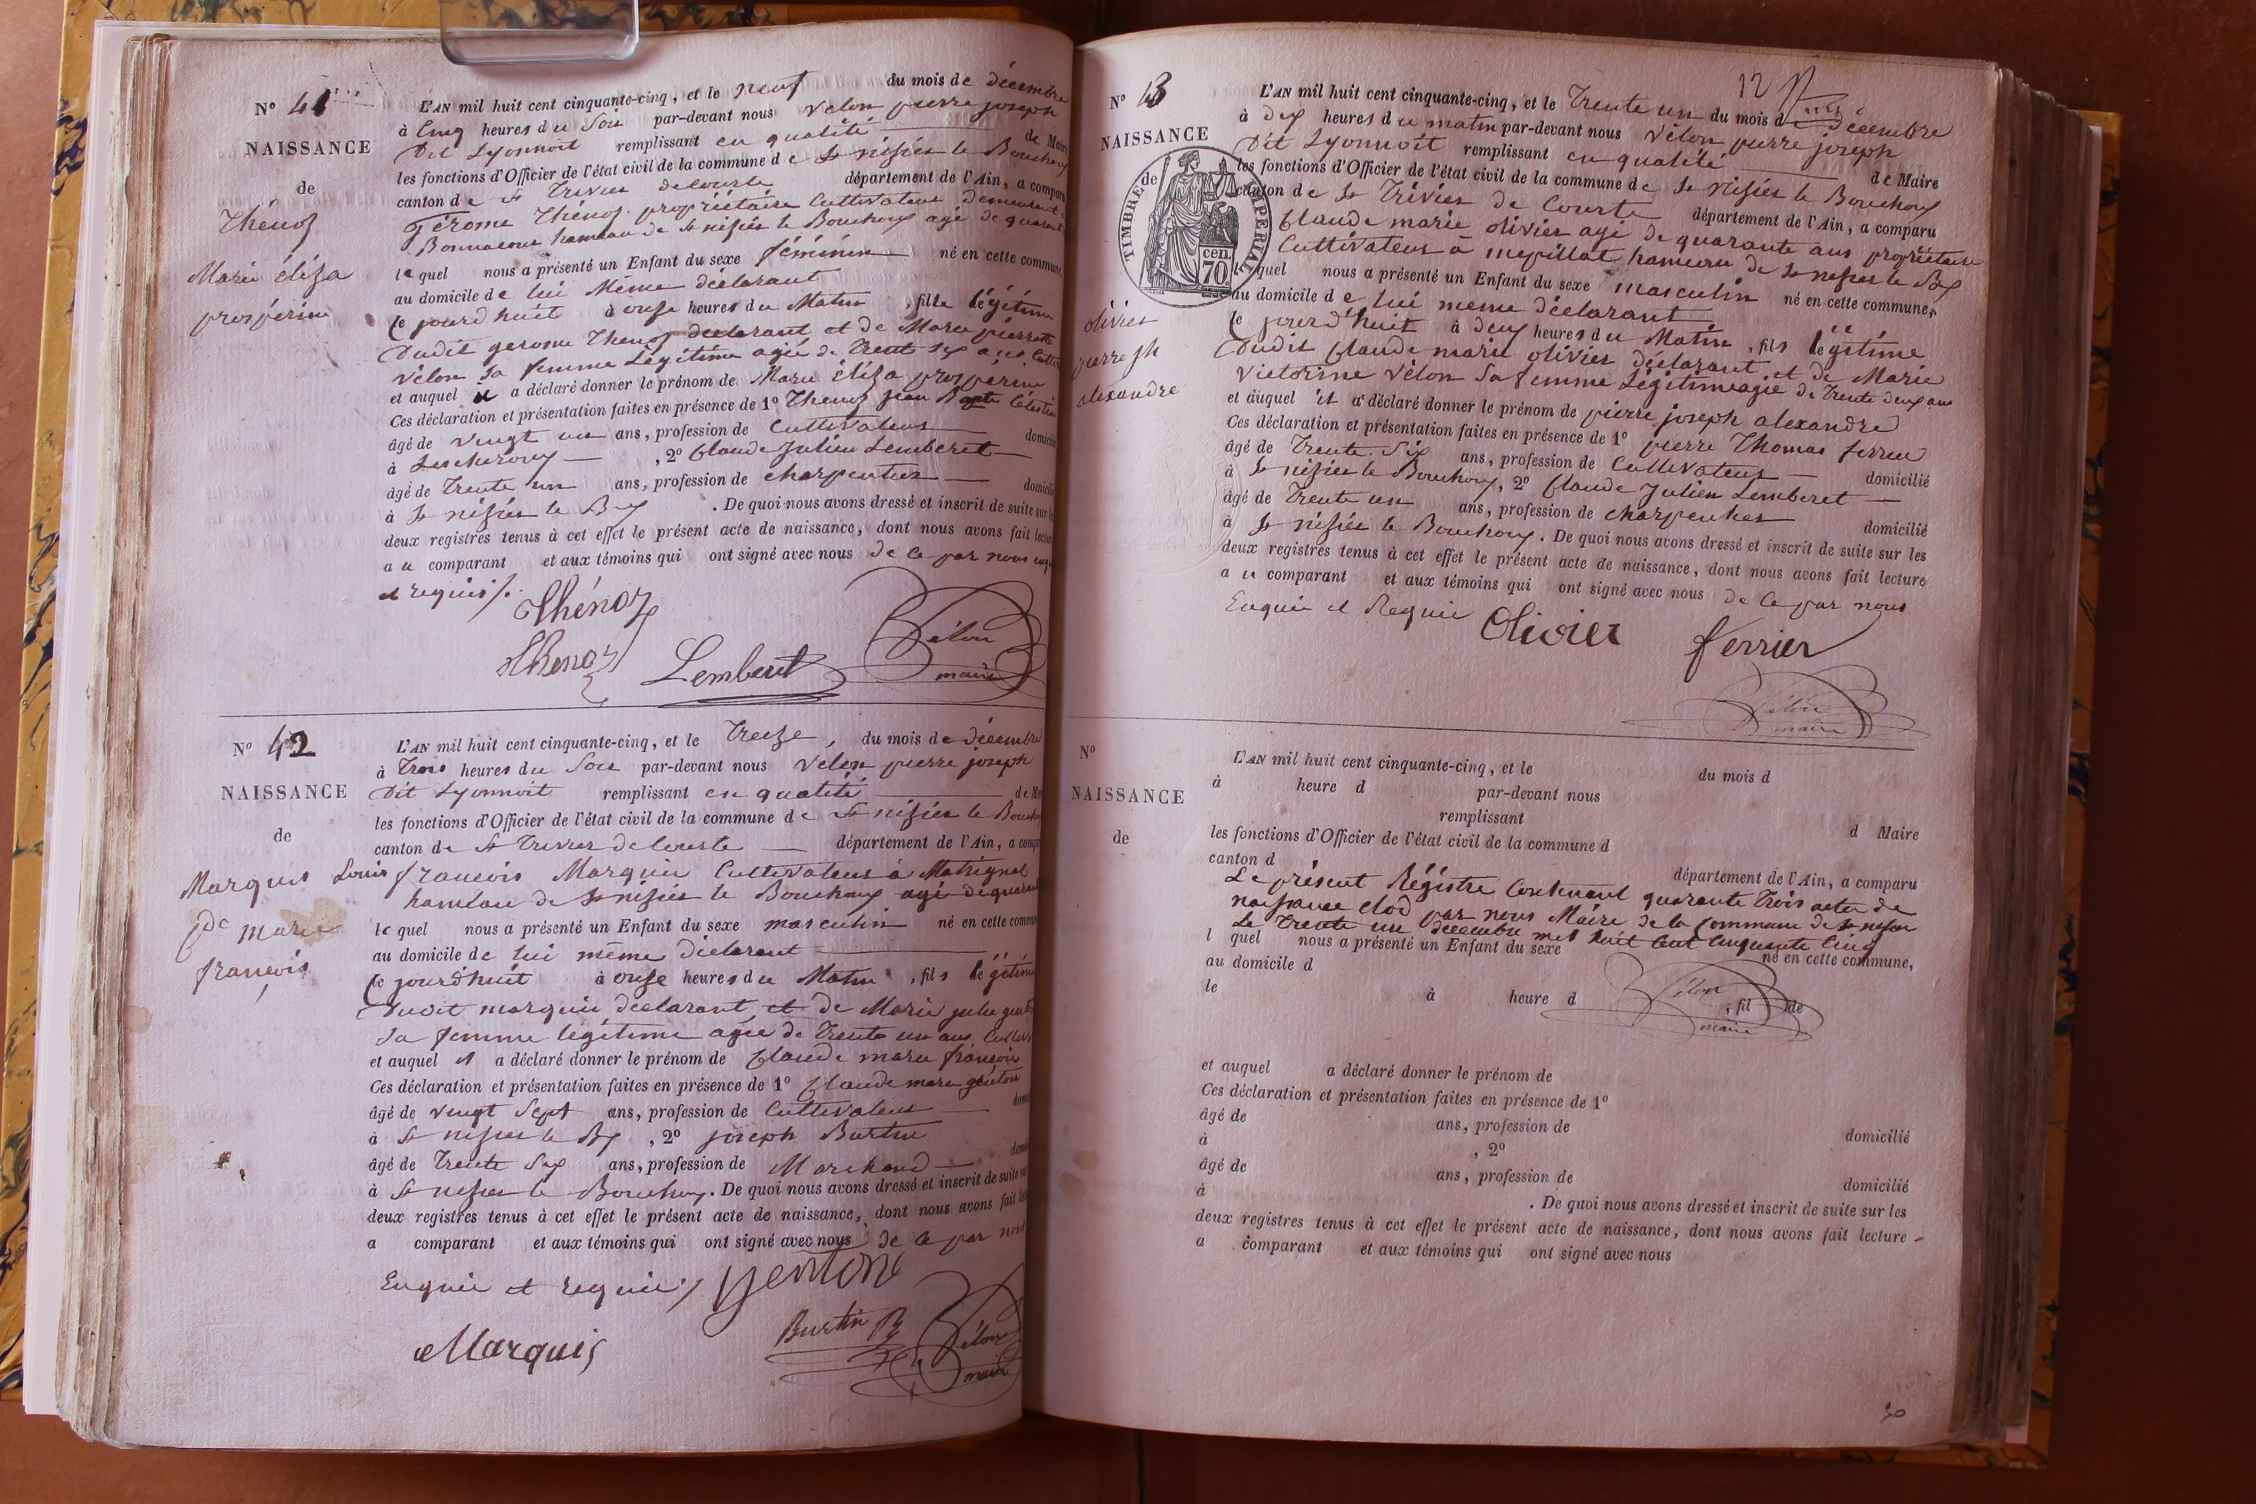 N° 41
NAISSANCE
de
Thénoz
Marie éliza
prospérine
L'AN mil huit cent cinquante-cinq, et le neuf du mois de décembre
à Cinq heures du Soir par-devant nous Vélon pierre joseph
Dit Lyonnoit remplissant en qualité de Maire
les fonctions d'Officier de l'état civil de la commune de St nisier le Bouchoux
canton de St Trivier de Courte département de l'Ain, a comparu
Jérome Thénoz propriétaire Cultivateur Demeurant à
hameau de St nisier le Bouchoux agé de quarante
lequel nous a présenté un Enfant du sexe féminin né en cette commune
au domicile de lui Même déclarant
Ce jourd'huit à onse heures du Matin, fille légitime
Dudit gerome Thenoz déclarant et de Marie pierrette
Vélon Sa femme Légitime agée de Trente Six ans
et auquel il a déclaré donner le prénom de Marie éliza prospérine
Ces déclaration et présentation faites en présence de 1° Thenoz jean Bapte Célestin
âgé de vingt un ans, profession de Cultivateur domicilié
à Lescheroux, 2° Claude Julien Lemberet
âgé de Trente un ans, profession de charpentier domicilié
à St nisier le Bx. De quoi nous avons dressé et inscrit de suite sur les
deux registres tenus à cet effet le présent acte de naissance, dont nous avons fait lecture
au comparant et aux témoins qui ont signé avec nous de ce par nous
et requis /.
Thénoz
Thenoz Lemberet Vélon
maire
N° 42
NAISSANCE
de
Marquis Louis
Cde marie
françois
L'AN mil huit cent cinquante-cinq, et le Treize, du mois de décembre
à Trois heures du Soir par-devant nous Vélon pierre joseph
Dit Lyonnoit remplissant en qualité de
les fonctions d'Officier de l'état civil de la commune de St nisier le Bouchoux
canton de St Trivier de Courte département de l'Ain, a comparu
françois Marquis Cultivateur à Matrignat
hameau de St nisier le Bouchoux agé de quarante
lequel nous a présenté un Enfant du sexe masculin né en cette commune
au domicile de lui même déclarant
Ce jourd'huit à onse heures du Matin, fils légitime
Dudit marquis déclarant et de Marie julie
Sa femme légitime agée de Trente un ans
et auquel il a déclaré donner le prénom de Claude marie françois
Ces déclaration et présentation faites en présence de 1° Claude marie génton
âgé de vingt Sept ans, profession de Cultivateur
à St nisier le Bx, 2° joseph Burtin
âgé de Trente Six ans, profession de Marchand
à St nisier le Bouchoux. De quoi nous avons dressé et inscrit de suite sur
deux registres tenus à cet effet le présent acte de naissance, dont nous avons fait
a comparant et aux témoins qui ont signé avec nous de ce par nous
Enquis et requis / Genton
Burtin Vélon
Marquis maire
12
N° 43
NAISSANCE
de
TIMBRE IMPERIAL
70 cen.
olivier
pierre jh
alexandre
L'AN mil huit cent cinquante-cinq, et le Trente un du mois de décembre
à dix heures du matin par-devant nous Vélon pierre joseph
Dit Lyonnoit remplissant en qualité de Maire
les fonctions d'Officier de l'état civil de la commune de St nisier le Bouchoux
canton de St Trivier de Courte département de l'Ain, a comparu
Claude marie olivier agé de quarante ans propriétaire
Cultivateur à mépillat hameau de St nisier le Bx
lequel nous a présenté un Enfant du sexe masculin né en cette commune,
au domicile de lui meme déclarant
Ce jourd'huit à deux heures du Matin, fils légitime
Dudit Claude marie olivier déclarant et de Marie
Victorine Vélon Sa femme Légitime agée de Trente deux ans
et auquel il a déclaré donner le prénom de pierre joseph alexandre
Ces déclaration et présentation faites en présence de 1° pierre Thomas ferrier
âgé de Trente Six ans, profession de Cultivateur domicilié
à St nisier le Bouchoux, 2° Claude Julien Lemberet
âgé de Trente un ans, profession de charpentier domicilié
à St nisier le Bouchoux. De quoi nous avons dressé et inscrit de suite sur les
deux registres tenus à cet effet le présent acte de naissance, dont nous avons fait lecture
au comparant et aux témoins qui ont signé avec nous de ce par nous
Enquis et Requis Olivier ferrier
Vélon
maire
N°
NAISSANCE
de
L'AN mil huit cent cinquante-cinq, et le du mois d
à heure d par-devant nous
remplissant d Maire
les fonctions d'Officier de l'état civil de la commune d
canton d département de l'Ain, a comparu
Le présent Régistre Contenant quarante Trois actes de
naissance clod par nous Maire de la Commune de St nisier
Le Trente un décembre mil huit Cent Cinquante Cinq
l quel nous a présenté un Enfant du sexe né en cette commune,
au domicile d
le à heure d , fil de
Vélon
maire
et auquel a déclaré donner le prénom de
Ces déclaration et présentation faites en présence de 1°
âgé de ans, profession de domicilié
à , 2°
âgé de ans, profession de domicilié
à . De quoi nous avons dressé et inscrit de suite sur les
deux registres tenus à cet effet le présent acte de naissance, dont nous avons fait lecture
a comparant et aux témoins qui ont signé avec nous
30